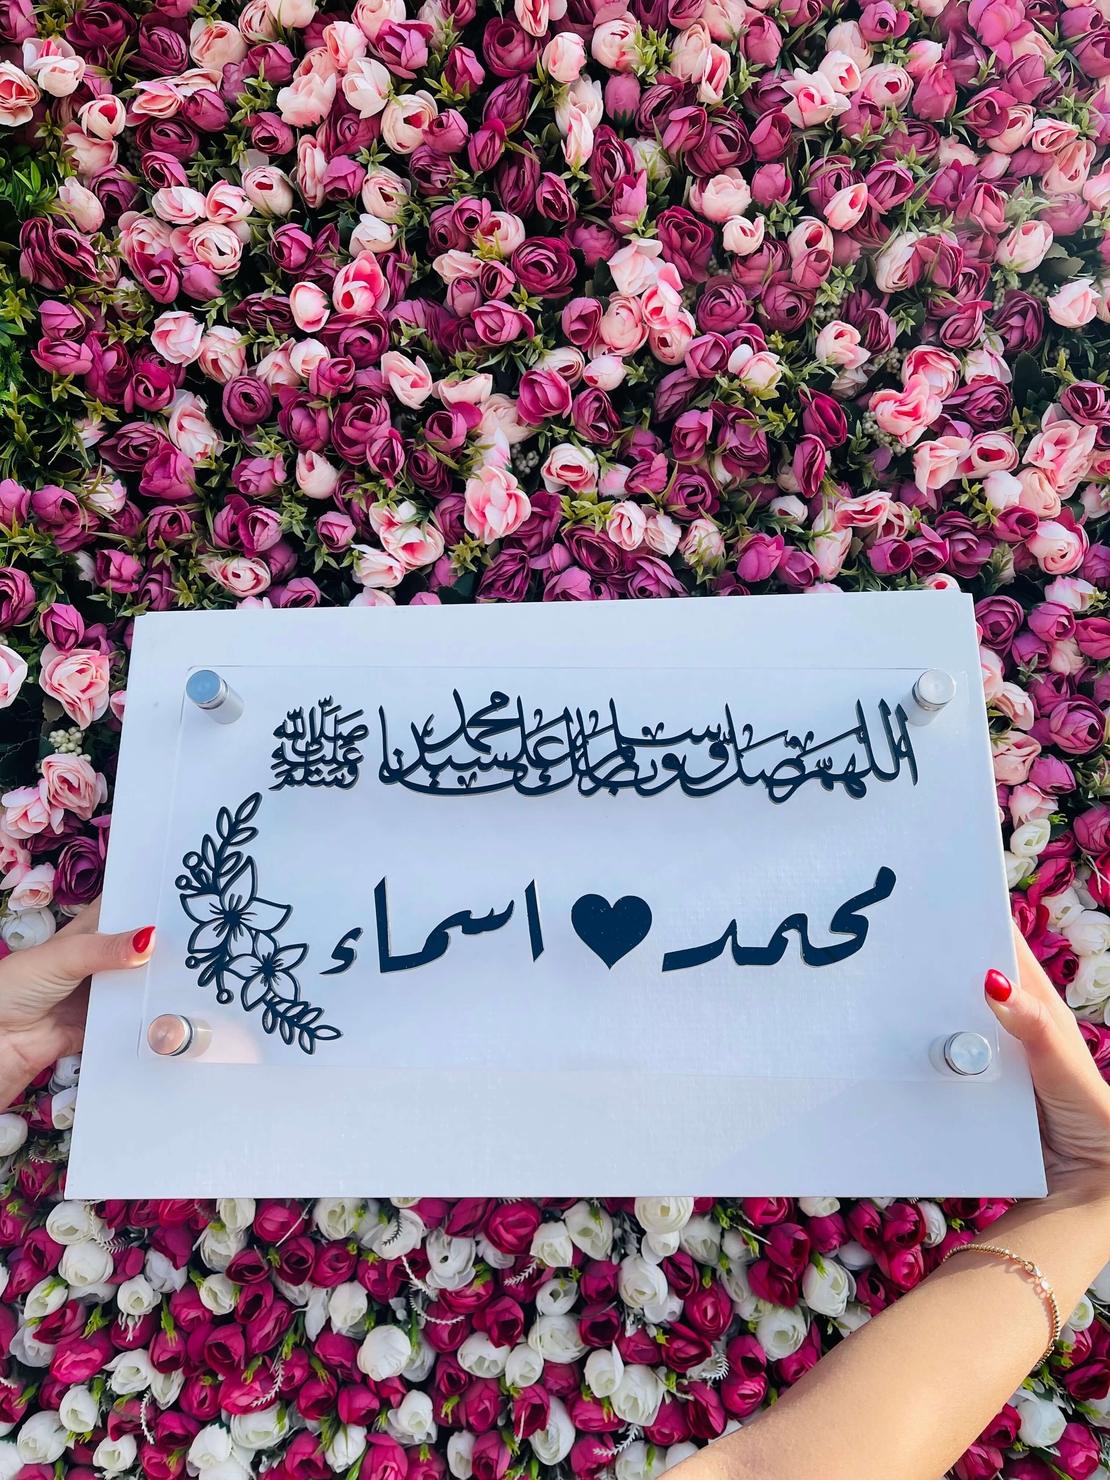 اللهم صل وسلم وبارك على سيدنا محمد ﷺ
محمد ♥ اسماء